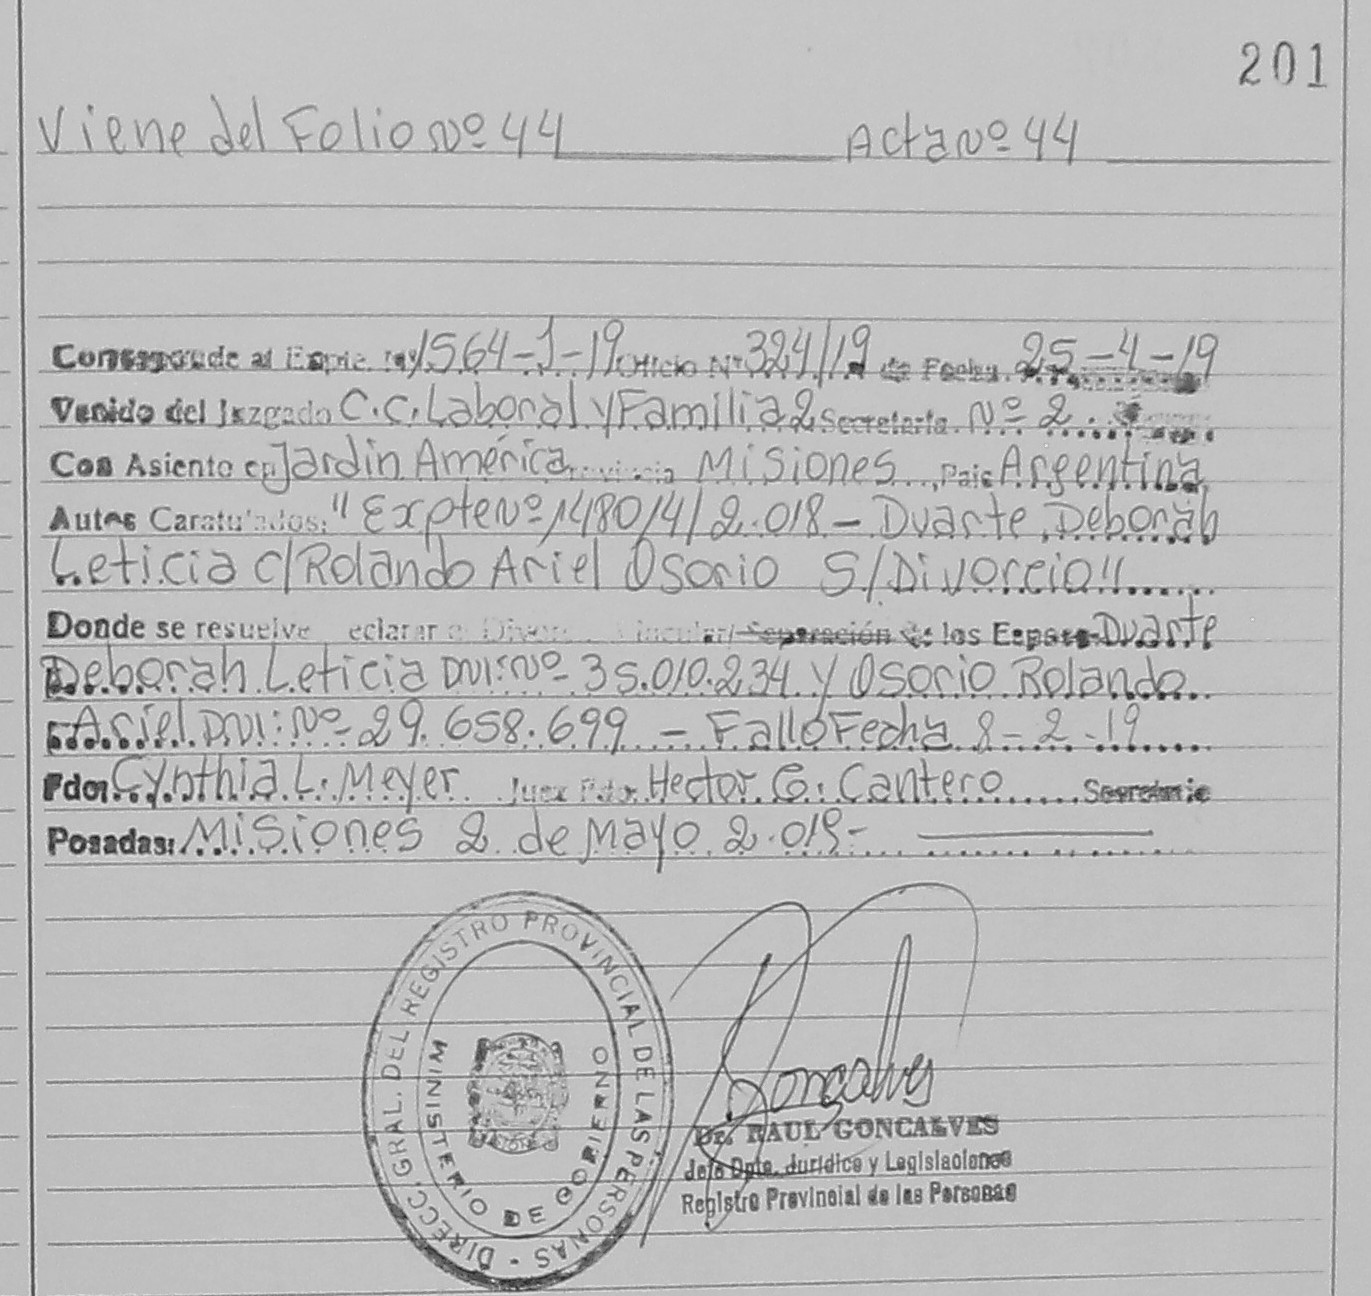 201
Viene del Folio Nº 44 Acta Nº 44
Corresponde al Expte. Nº 1564-J-19 Oficio Nº 324/19 de Fecha 25-4-19
Venido del Juzgado C.C. Laboral y Familia 2 Secretaria Nº 2
Con Asiento en Jardin América Provincia Misiones Pais Argentina
Autos Caratulados: "Expte Nº 148014/2.018 - Duarte Deborah
Leticia c/ Rolando Ariel Osorio S/Divorcio"
Donde se resuelve eclarar Divor Vincular/ Separación de los Esposos Duarte
Deborah Leticia DNI: Nº 35.010.234 y Osorio Rolando
Ariel DNI: Nº 29.658.699 - Fallo Fecha 8-2-19
Fdo: Cynthia L. Meyer Juez Fdo: Hector G. Cantero Secretario
Posadas: Misiones 2 de Mayo 2.019-
DIRECC. GRAL. DEL REGISTRO PROVINCIAL DE LAS PERSONAS -
MINISTERIO DE GOBIERNO
Goncalves
Dr. RAUL GONCALVES
Jefe Dpto. Jurídico y Legislaciones
Registro Provincial de las Personas